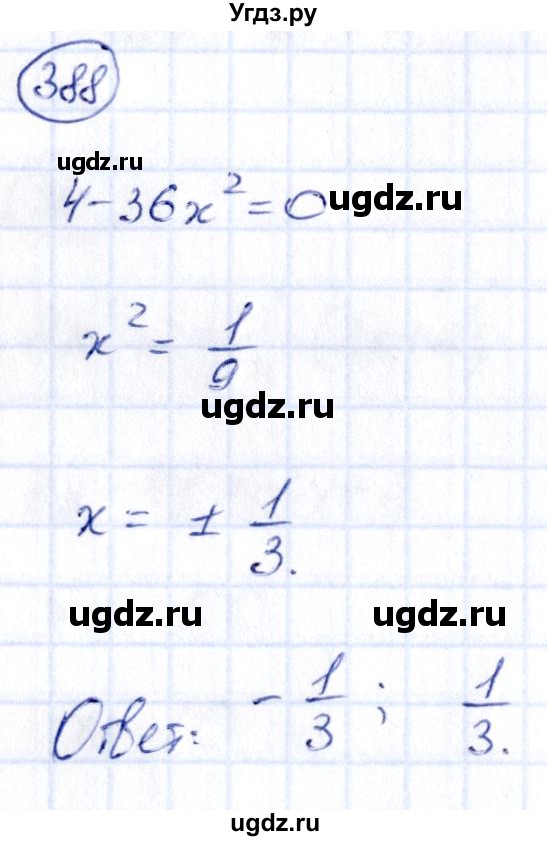 Угдз.ру
388
ugdz.ru
4-36x²=0 ugdz.ru
x² = 1/9
ugdz.ru
x = ± 1/3.
ugdz.ru ugdz.ru
Ответ: - 1/3 ; 1/3.
ugdz.ru